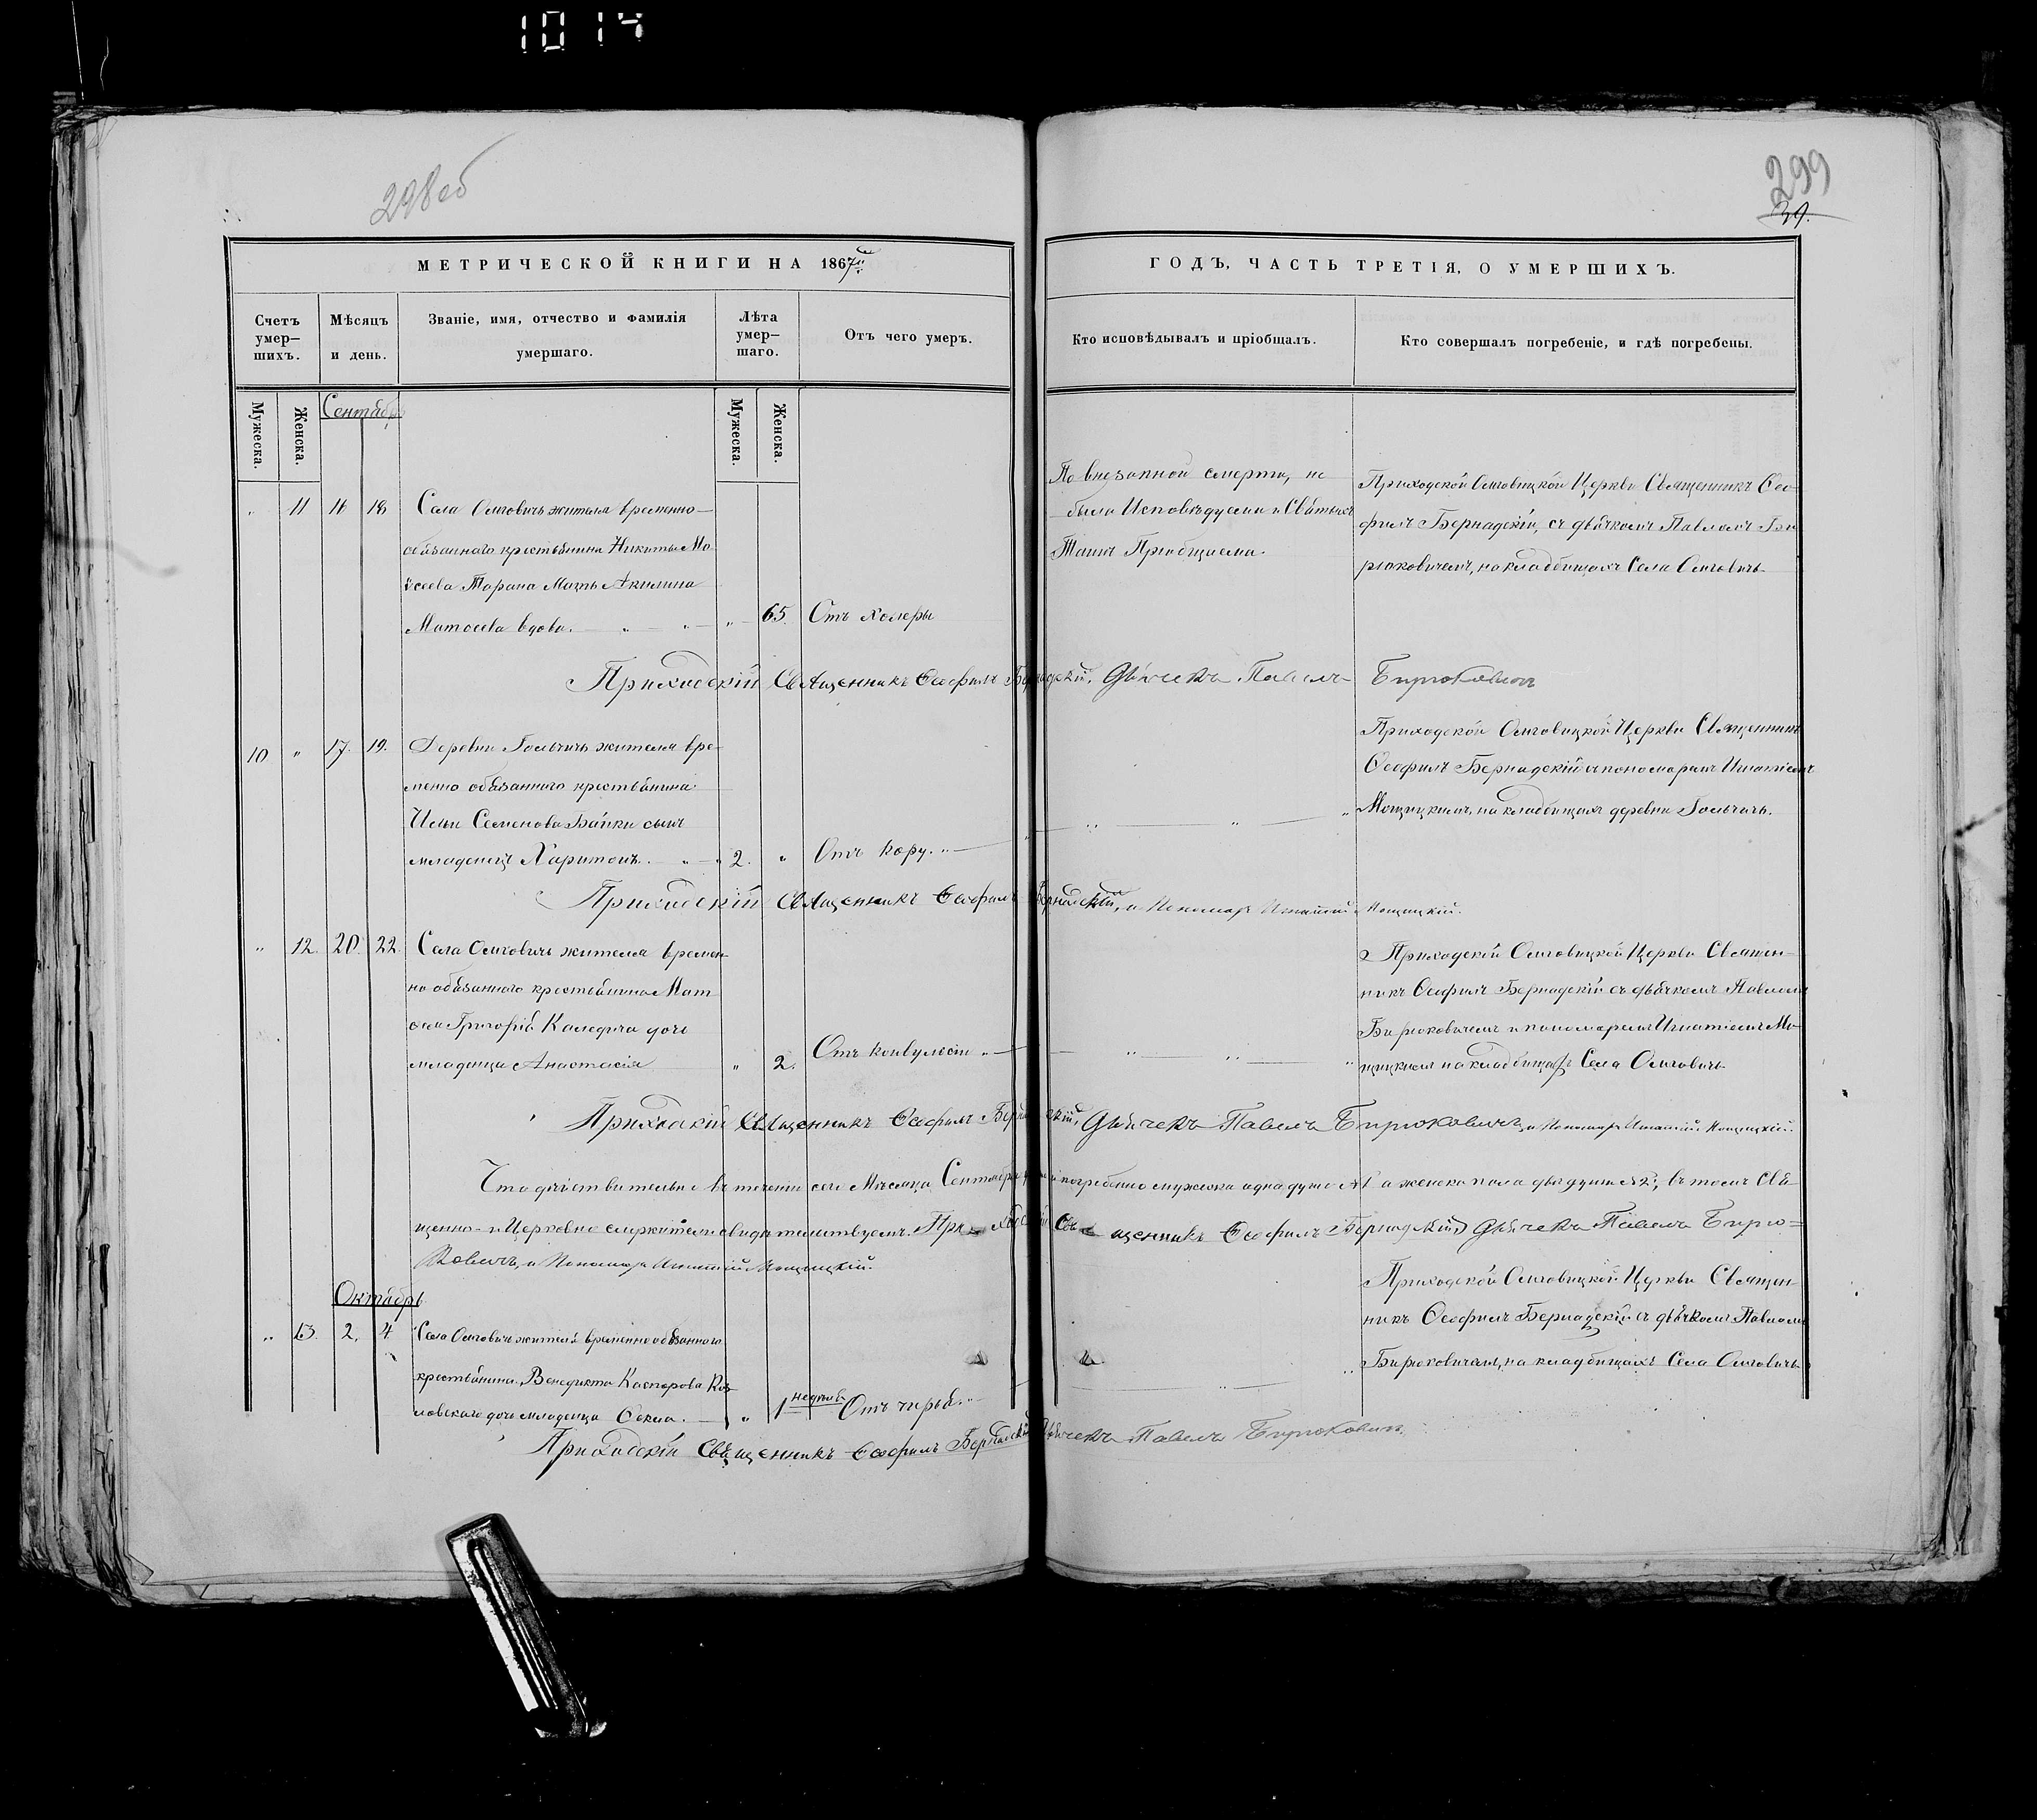 1014
298об
299
39.
МЕТРИЧЕСКОЙ КНИГИ НА 1867й
ГОДЪ, ЧАСТЬ ТРЕТІЯ, О УМЕРШИХЪ.
Счетъ умер–шихъ.
Мѣсяцъ и день.
Званіе, имя, отчество и фамилія умершаго.
Лѣта умер–шаго.
Отъ чего умеръ.
Кто исповѣдывалъ и пріобщалъ.
Кто совершалъ погребеніе, и гдѣ погребены.
Мужеска.
Женска.
Сентябрь
Мужеска.
Женска.
" 11 16 18 Села Олговичъ жителя временно–
обязаннаго крестьянина Никиты Мо
ѵсеева Тарана Мать Акилина
Матѳеева вдова. " " " 65. Отъ холеры
По внезапной смерти, не
были Исповѣдуема и Святыхъ
Таинъ Пріобщаема.
Приходской Олговицкой Церкви Священникъ Ѳео
филъ Бернадскій, съ дьячкомъ Павломъ Би
рюковичемъ, на кладбищахъ Села Олговичъ
Приходскій Священникъ Ѳеофилъ Бернадскій, Дьячекъ Павелъ Бирюковичъ
10 " 17. 19. Деревни Гольчичъ жителя вре–
менно обязаннаго крестьянина
Ильи Семенова Байки сынъ
младенецъ Харитонъ. " " 2. " Отъ кору. "
Приходской Олговицкой Церкви Священникъ
Ѳеофилъ Бернадскій съ пономаремъ Игнатіемъ
Мощицкимъ, на кладбищахъ деревни Гольчичъ.
Приходскій Священникъ Ѳеофилъ Бернадскій, и Пономарь Игнатій Мощицкій.
" 12. 20. 22. Села Олговичъ жителя времен–
но обязаннаго крестьянина Мат
ѳея Григорія дочь
младеница Анастасія " 2. Отъ конвульсіи "
Приходскій Олговицкой Церкви Священ–
никъ Ѳеофилъ Бернадскій съ дьячкомъ Павломъ
Бирюковичемъ и пономаремъ Игнатіемъ Мо–
щицкимъ на кладбищахъ Села Олговичъ
Приходскій Священникъ Ѳеофилъ Бернадскій, Дьячекъ Павелъ Бирюковичъ, и Пономарь Игнатій Мощицкій.
Что дѣйствительно въ теченіи сего Мѣсяца Сентября погребенно мужеска одна душа №1 а женска пола двѣ души №2, въ томъ Свя
щенно– и Церковно служители свидѣтельствуемъ. Приходскій Священникъ Ѳеофилъ Бернадскій, Дьячекъ Павелъ Бирю=
ковичъ, и Пономарь Игнатій Мощицкій.
Октябрь
" 13. 2. 4. Села Олговичъ жителя временно обязаннаго
крестьянина Венедикта Каспорова Коз
ловскаго дочь младеница Ѳекла. " 1 недѣля Отъ чирья. "
Приходской Олговицкой Церкви Священ–
никъ Ѳеофилъ Бернадскій съ дьячкомъ Павломъ
Бирюковичемъ, на кладбищахъ Села Олговичъ
Приходскій Священникъ Ѳеофилъ Бернадскій Дьячекъ Павелъ Бирюковичъ.